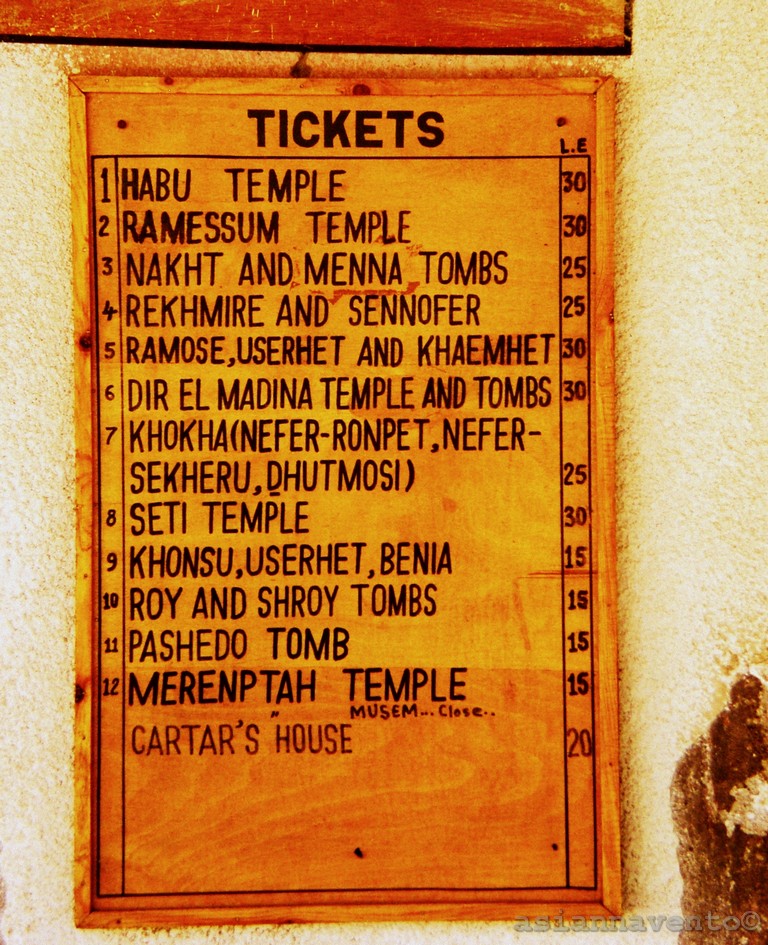 TICKETS
L.E
1 HABU TEMPLE 30
2 RAMESSUM TEMPLE 30
3 NAKHT AND MENNA TOMBS 25
4 REKHMIRE AND SENNOFER 25
5 RAMOSE,USERHET AND KHAEMHET 30
6 DIR EL MADINA TEMPLE AND TOMBS 30
7 KHOKHA(NEFER-RONPET,NEFER-
SEKHERU,DHUTMOSI) 25
8 SETI TEMPLE 30
9 KHONSU,USERHET,BENIA 15
10 ROY AND SHROY TOMBS 15
11 PASHEDO TOMB 15
12 MERENPTAH TEMPLE 15
" MUSEM... Close..
CARTAR'S HOUSE 20
asiannavento©